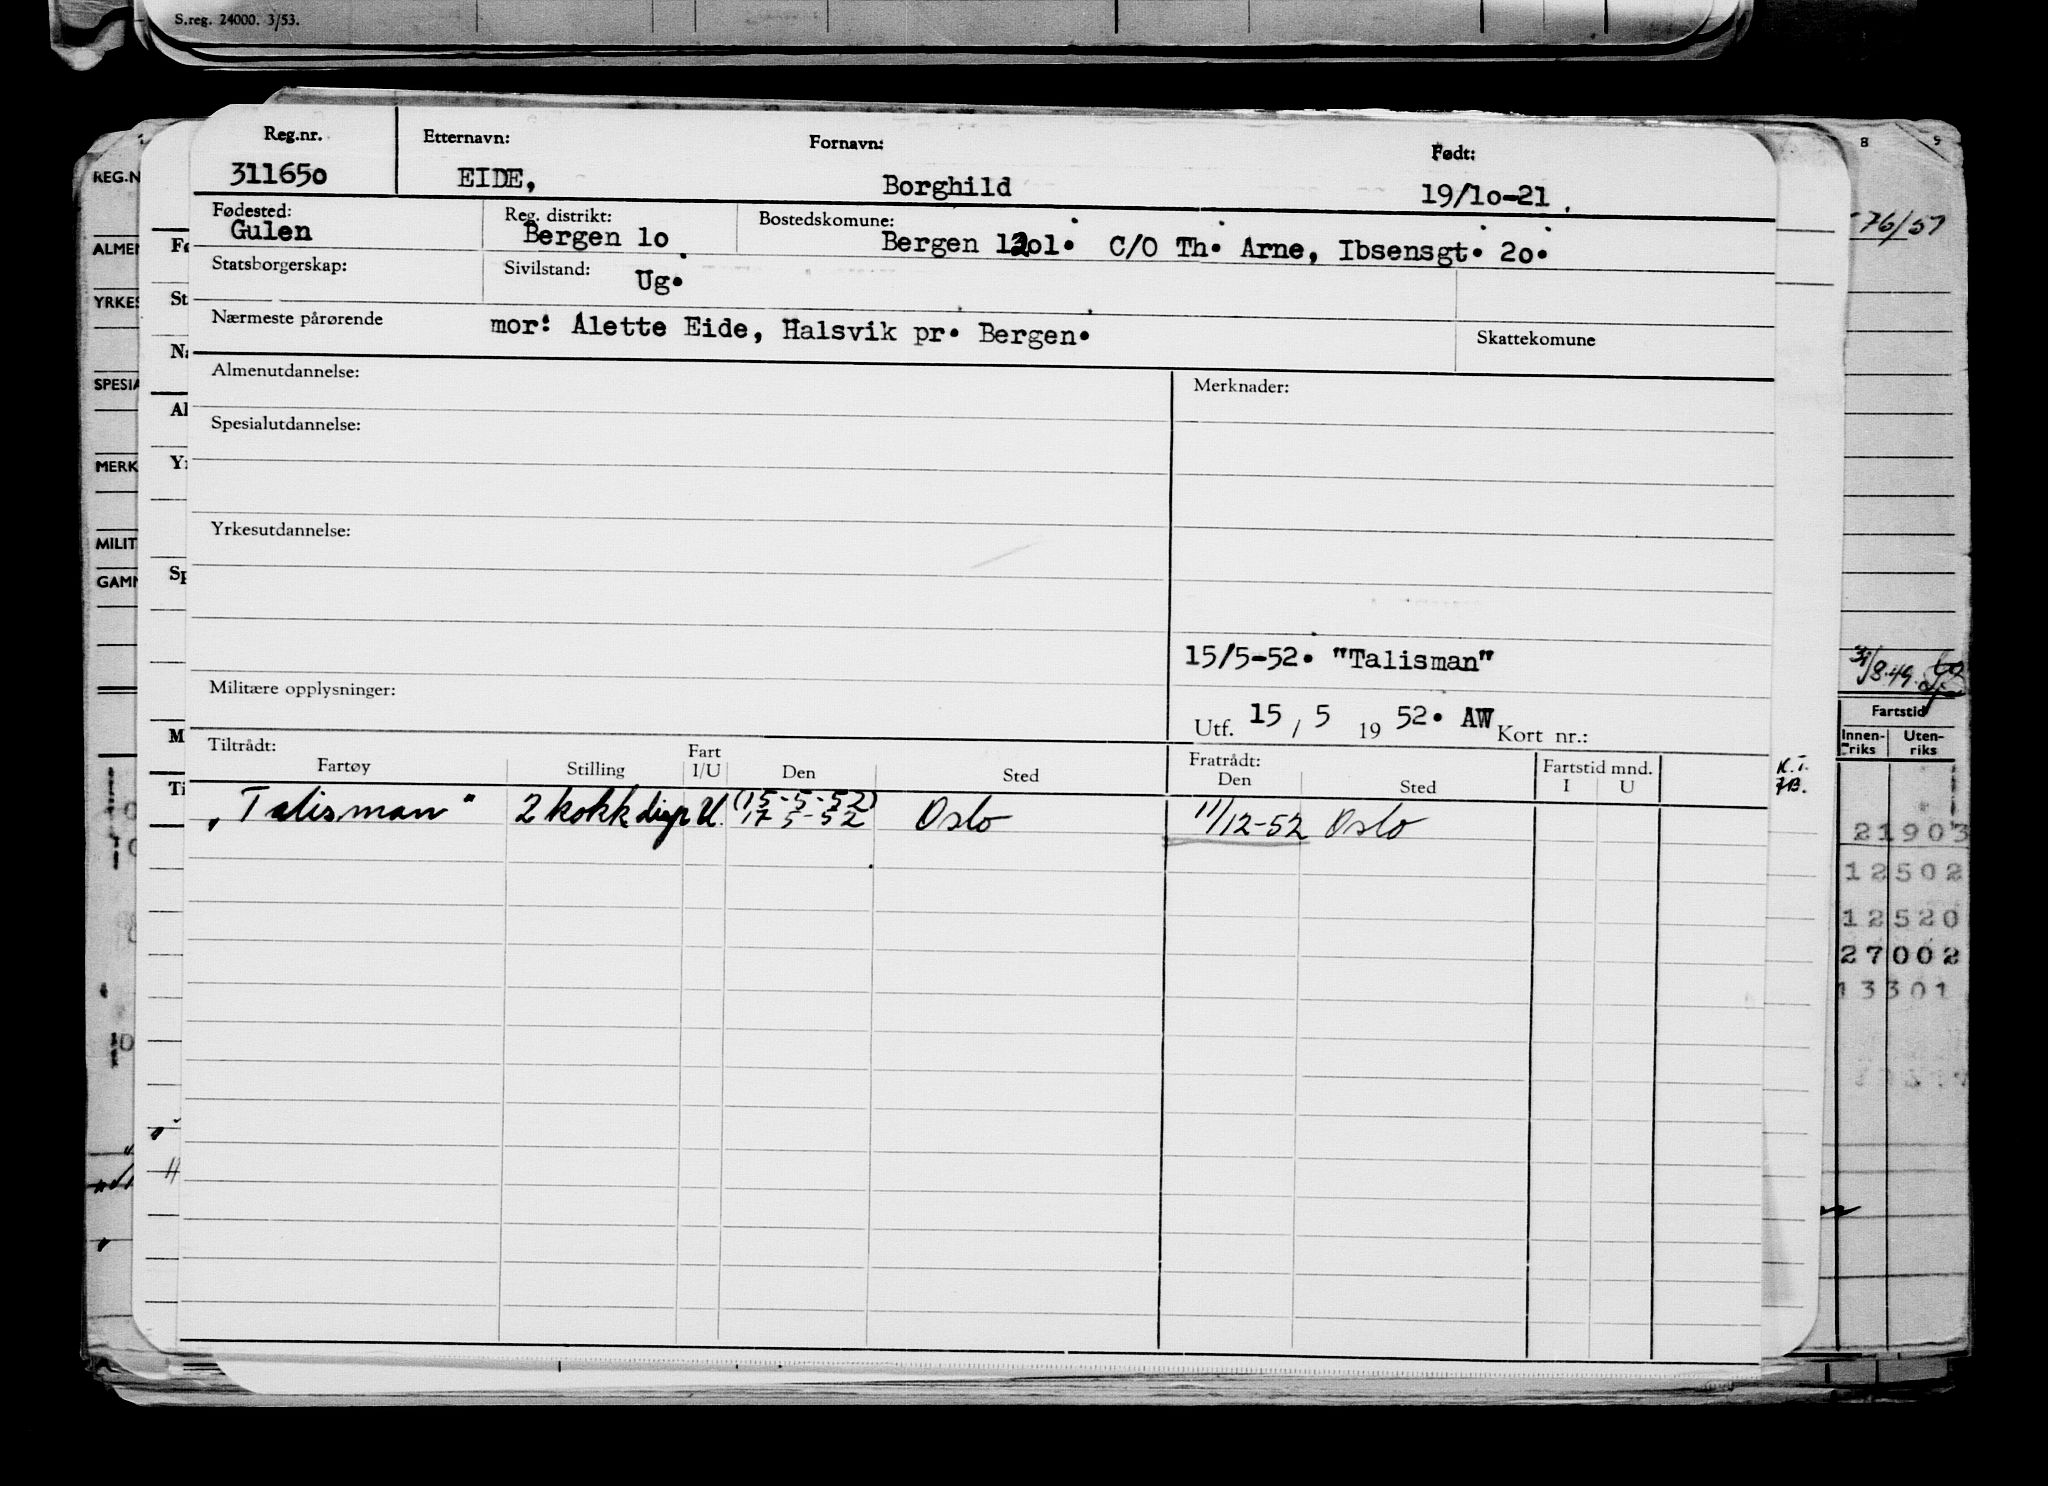 S.reg. 24000. 3/53.
Reg.nr. Etternavn: Fornavn: Født:
311650 EIDE, Borghild 19/10-21.
Fødested: Reg. distrikt: Bostedskomune:
Gulen Bergen 10 Bergen 1201. C/O Th. Arne, Ibsensgt. 20.
Statsborgerskap: Sivilstand: Ug.
Nærmeste pårørende mor: Alette Eide, Halsvik pr. Bergen. Skattekomune
Almenutdannelse: Merknader:
Spesialutdannelse:
Yrkesutdannelse:
15/5-52. "Talisman"
Militære opplysninger:
Utf. 15 / 5 19 52. AW Kort nr.:
Tiltrådt: Fratrådt:
Fartøy Stilling Fart I/U Den Sted Den Sted Fartstid mnd. I U
(15-5-52)
„Talisman" 2 kokk disp U. 17 5-52 Oslo 11/12-52 Oslo
REG.N
ALMEN
YRKES
SPESIA
MERK
MILIT
GAMM
Fø
St
Na
Al
Yr
Sp
M
Ti
8 9
76/57
31/8.49.
Fartstid
Innen-riks Uten-riks
K.T.
7B.
21903
12502
12520
27002
13301